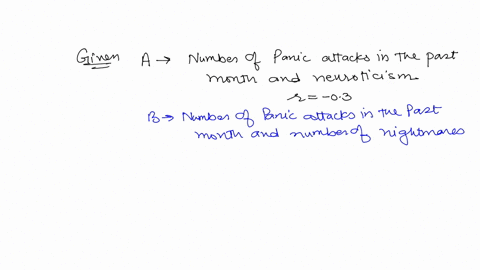 Given A → Number of Panic attacks in the past
month and neuroticism.
r = -0.3
B → Number of Panic attacks in the Past
month and number of nightmares